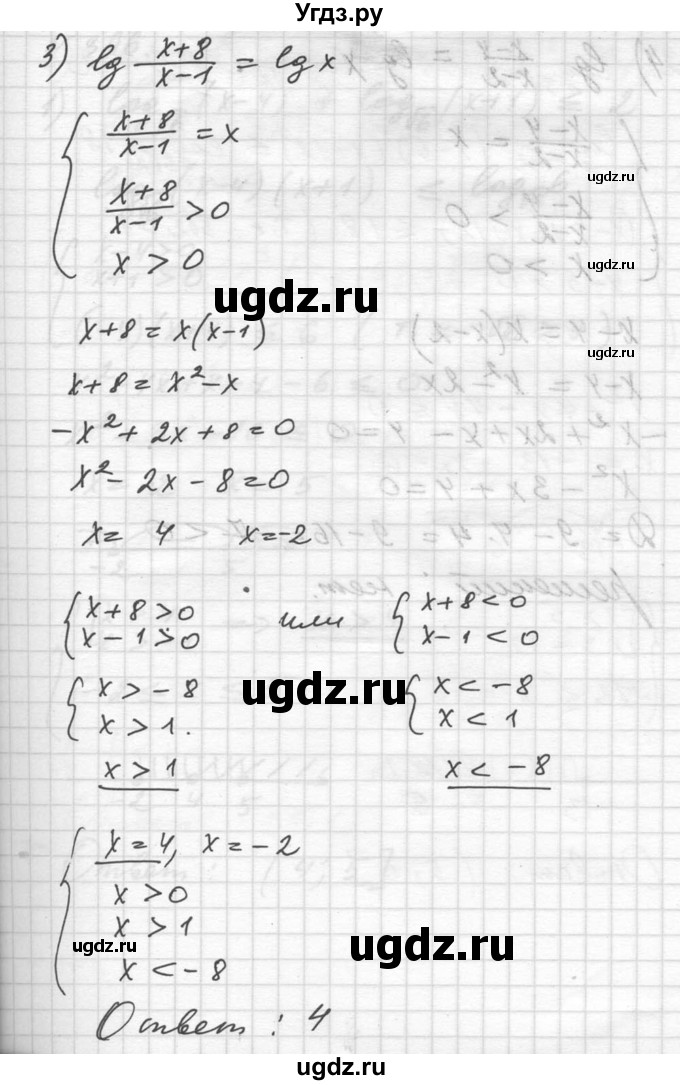 Угдз.ру
3) lg (x+8)/(x-1) = lg x
{ (x+8)/(x-1) = x
(x+8)/(x-1) > 0
x > 0
ugdz.ru
ugdz.ru
ugdz.ru
x+8 = x(x-1)
ugdz.ru
x+8 = x²-x
-x²+2x+8=0
x²-2x-8=0
x= 4 x=-2
{ x+8>0 или { x+8<0
x-1>0 x-1<0
ugdz.ru
{ x>-8 { x<-8
x>1. x<1
x>1 x<-8
{ x=4, x=-2
x>0
x>1
ugdz.ru
ugdz.ru
x<-8
Ответ: 4
ugdz.ru